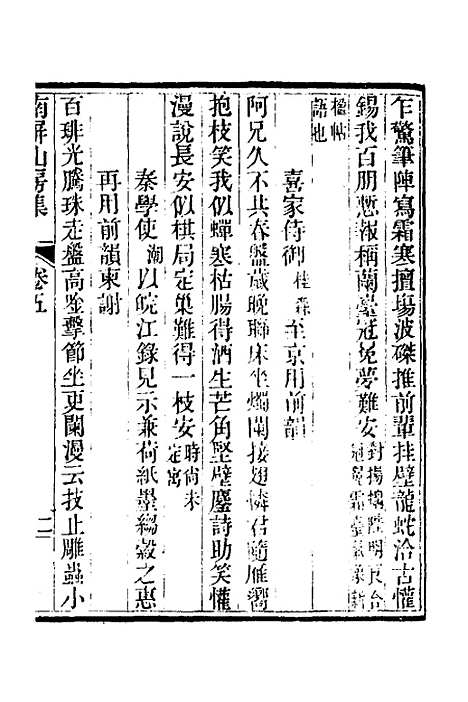 乍驚筆陣寫霜寒擅場波磔推前輩挂壁龍蛇洽古懽
錫我百朋慙報稱蘭臺冠冕夢難安
楹帖
語也
喜家侍御桂森至京用前韻
阿兄久不共春盤歲晚聯床坐燭闌接翅憐君隨雁嚮
抱枝笑我似蟬寒枯腸得酒生芒角堅壁鏖詩助笑懽
漫說長安似棋局定巢難得一枝安時尚未定寓
秦學使潮以皖江錄見示兼荷紙墨縐縠之惠
再用前韻柬謝
百琲光騰珠走盤高歌擊節坐更闌漫云技止雕蟲小
南屏山房集 卷五 二